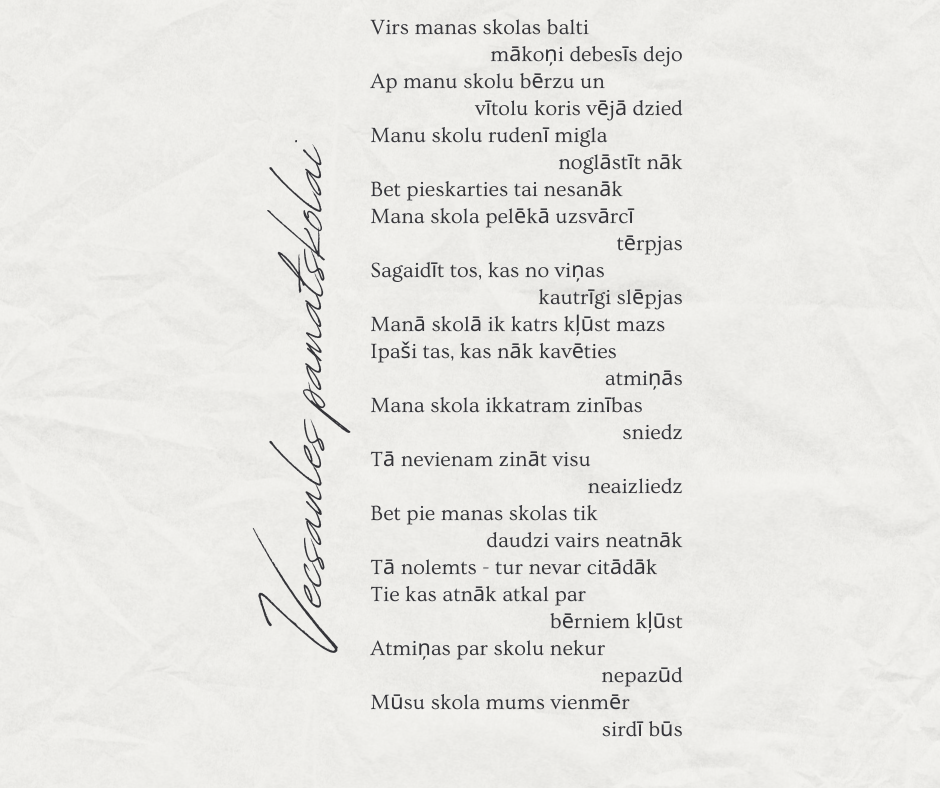 Vecsaules pamatskolai
Virs manas skolas balti
mākoņi debesīs dejo
Ap manu skolu bērzu un
vītolu koris vējā dzied
Manu skolu rudenī migla
noglāstīt nāk
Bet pieskarties tai nesanāk
Mana skola pelēkā uzsvārcī
tērpjas
Sagaidīt tos, kas no viņas
kautrīgi slēpjas
Manā skolā ik katrs kļūst mazs
Ipaši tas, kas nāk kavēties
atmiņās
Mana skola ikkatram zinības
sniedz
Tā nevienam zināt visu
neaizliedz
Bet pie manas skolas tik
daudzi vairs neatnāk
Tā nolemts - tur nevar citādāk
Tie kas atnāk atkal par
bērniem kļūst
Atmiņas par skolu nekur
nepazūd
Mūsu skola mums vienmēr
sirdī būs